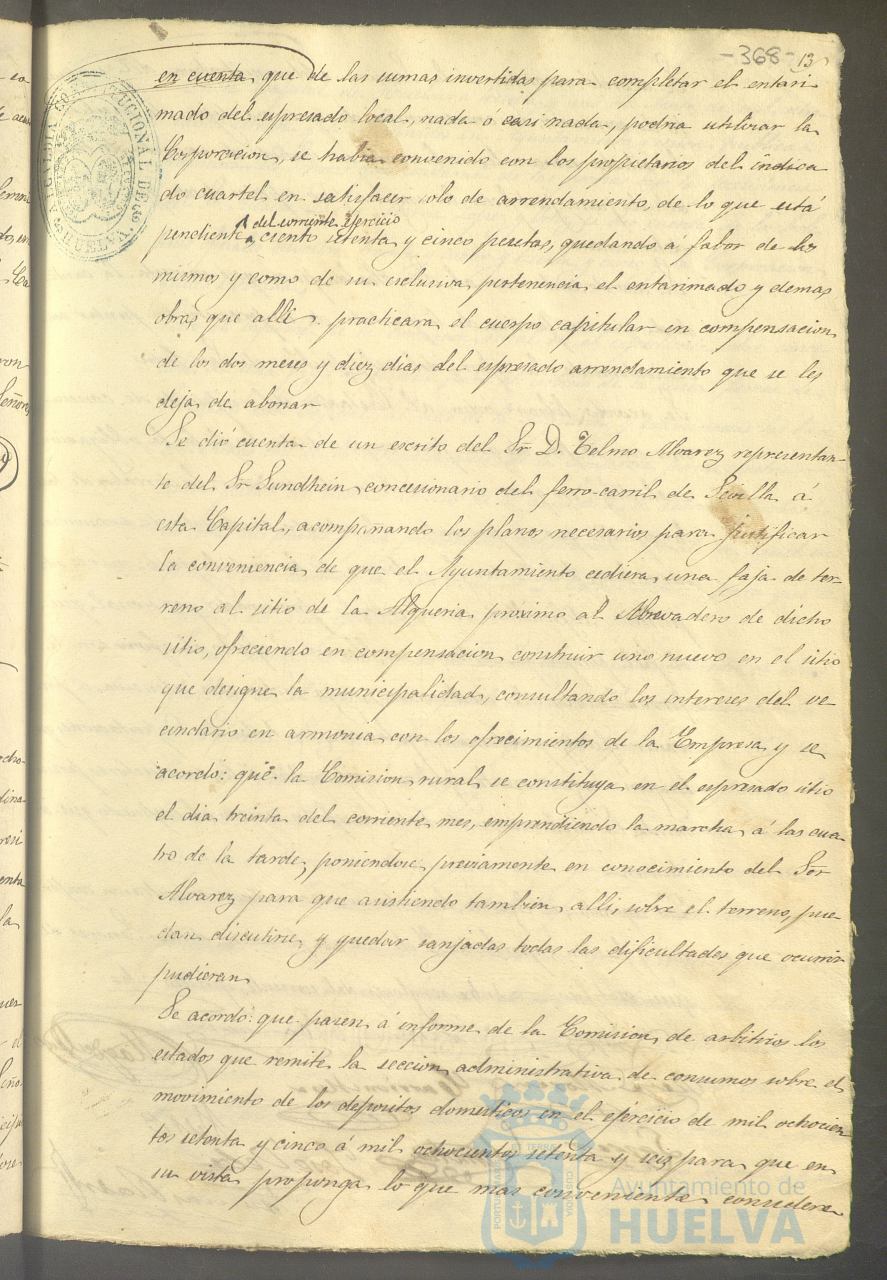 -368- 13
en cuenta, que de las sumas invertidas para completar el entari-
mado del espresado local, nada ó casi nada, podria utilizar la
Corporacion, se habia convenido con los propietarios del indica
do cuartel en satisfacer solo de arrendamiento, de lo que está
pendiente del corriente ejercicio ciento setenta y cinco pesetas, quedando á fabor de los
mismos y como de su esclusiva pertenencia, el entarimado y demas
obras que alli practicara el cuerpo capitular en compensacion
de los dos meses y diez dias del espresado arrendamiento que se les
deja de abonar
Se dió cuenta de un escrito del Sr. D. Telmo Alvarez representan-
te del Sr Sundhein, concesionario del ferro-carril de Sevilla á
esta Capital, acompañando los planos necesarios para justificar
la conveniencia de que el Ayuntamiento cediera una faja de ter-
reno al sitio de la Alqueria, proximo al Abrevadero de dicho
sitio, ofreciendo en compensacion construir uno nuevo en el sitio
que designe la municipalidad, consultando los intereses del ve
cindario en armonia con los ofrecimientos de la Empresa y se
acordó: que la Comision rural se constituya en el espresado sitio
el dia treinta del corriente mes, emprendiendo la marcha á las cua-
tro de la tarde, poniendose previamente en conocimiento del Sor
Alvarez para que asistiendo tambien alli, sobre el terreno, pue-
dan discutirse y quedar sanjadas todas las dificultades que ocurrir
pudieran
Se acordó: que pasen á informe de la Comision de arbitrios los
estados que remite la seccion administrativa de consumos sobre el
movimiento de los depositos domesticos en el ejercicio de mil ochocien
tos setenta y cinco á mil ochocientos setenta y seis para que en
su vista proponga lo que mas conveniente considere
Ayuntamiento de
HUELVA